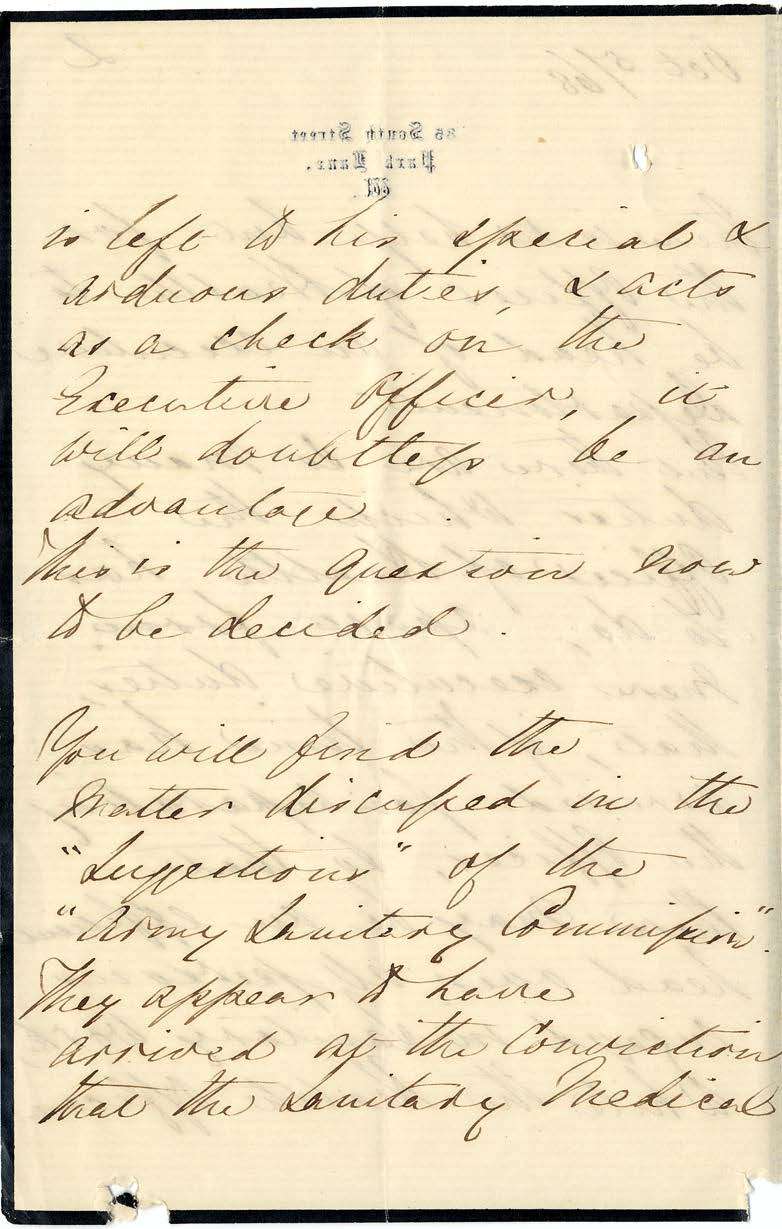 35 South Street
Park Lane.
W.
is left to his special &
arduous duties, & acts
as a check on the
Executive Officer, it
will doubtless be an
advantage.
This is the question now
to be decided.
You will find the
matter discussed in the
"Suggestions" of the
"Army Sanitary Commission".
They appear to have
arrived at the conviction
that the Sanitary Medical